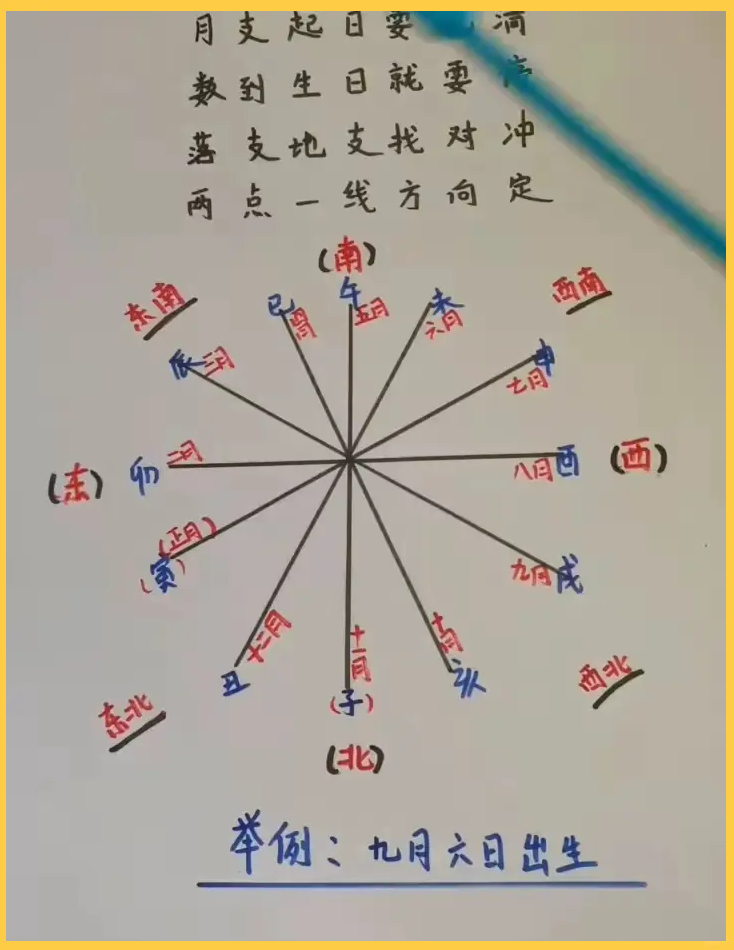 月支起日要 清
数到生日就要停
落支地支找对冲
两点一线方向定
(南)
东南
西南
巳 四月
午 五月
未 六月
辰 三月
申 七月
(东)
卯 二月
八月 酉
(西)
(正月)
(寅)
九月 戌
十二月
丑
十一月
(子)
十月
亥
东北
西北
(北)
举例：九月六日出生